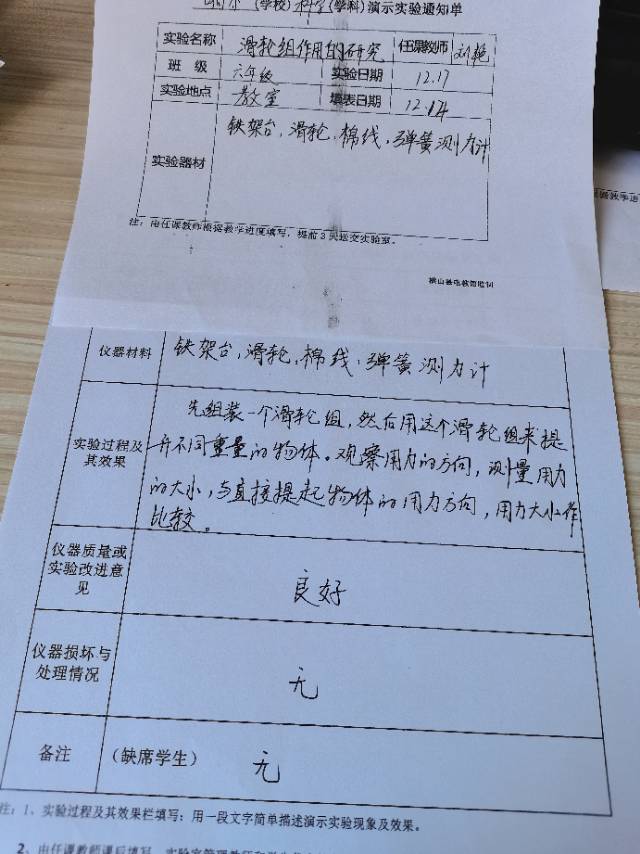 (学校)科学(学科)演示实验通知单
实验名称 滑轮组作用的研究 任课教师 刘艳
班 级 六年级 实验日期 12.17
实验地点 教室 填表日期 12.14
实验器材 铁架台,滑轮,棉线,弹簧测力计
注:由任课教师根据教学进度填写,提前3天送交实验室。
仪器材料 铁架台,滑轮,棉线,弹簧测力计
实验过程及其效果
先组装一个滑轮组,然后用这个滑轮组来提
升不同重量的物体。观察用力的方向,测量用力
的大小,与直接提起物体的用力方向,用力大小作
比较。
仪器质量或
实验改进意
见
良好
仪器损坏与
处理情况
无
备注 (缺席学生) 无
注:1、实验过程及其效果栏填写:用一段文字简单描述演示实验现象及效果。
2、由任课教师课后填写